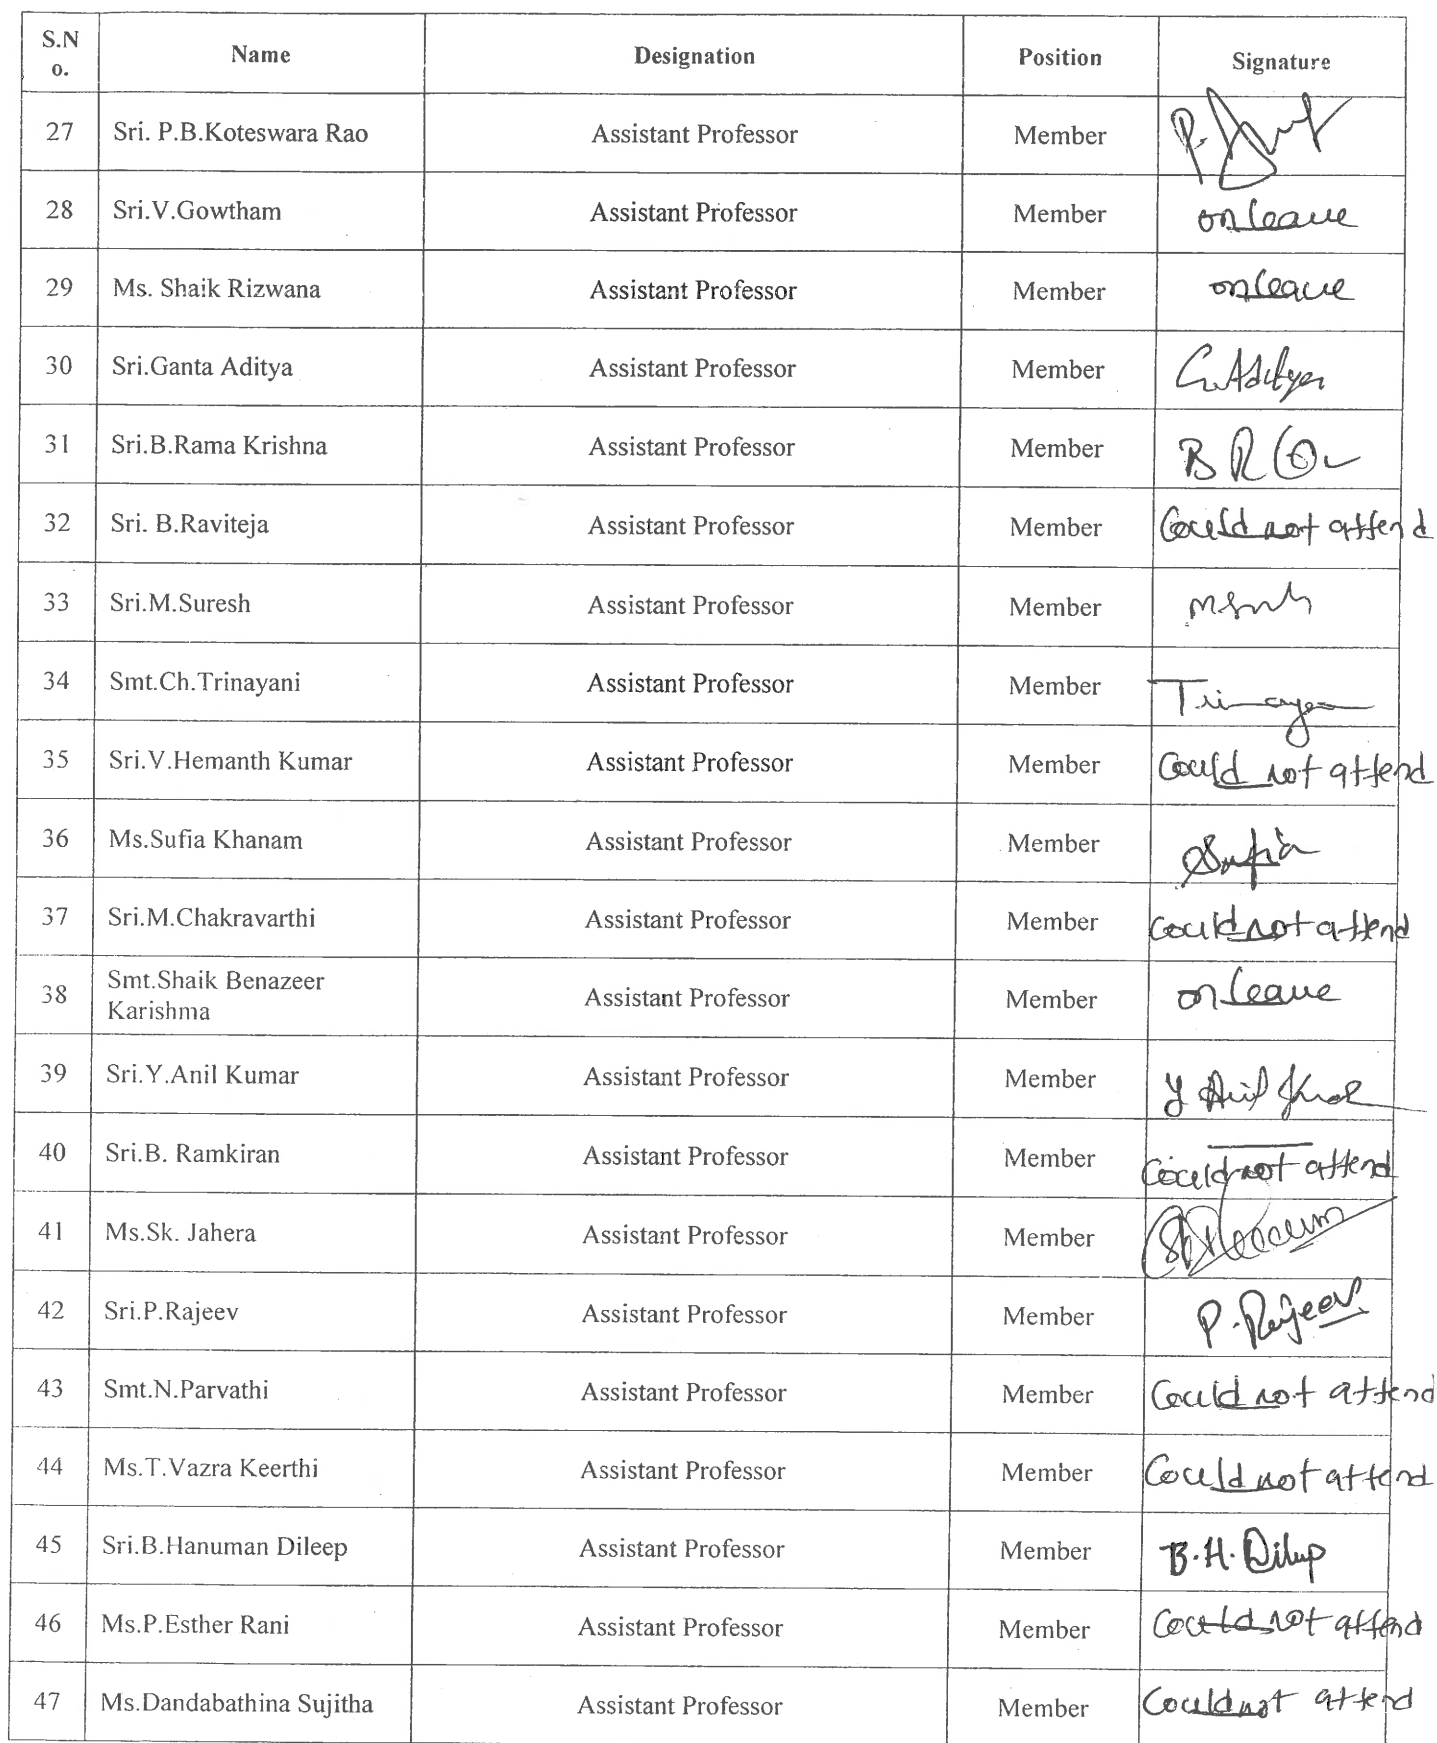 S.N
o.
Name
Designation
Position
Signature
27 Sri. P.B.Koteswara Rao Assistant Professor Member P.
28 Sri.V.Gowtham Assistant Professor Member on leave
29 Ms. Shaik Rizwana Assistant Professor Member on leave
30 Sri.Ganta Aditya Assistant Professor Member G.Aditya
31 Sri.B.Rama Krishna Assistant Professor Member B R
32 Sri. B.Raviteja Assistant Professor Member Could not attend
33 Sri.M.Suresh Assistant Professor Member
34 Smt.Ch.Trinayani Assistant Professor Member
35 Sri.V.Hemanth Kumar Assistant Professor Member Could not attend
36 Ms.Sufia Khanam Assistant Professor Member Sufia
37 Sri.M.Chakravarthi Assistant Professor Member Could not attend
38 Smt.Shaik Benazeer
Karishma Assistant Professor Member on leave
39 Sri.Y.Anil Kumar Assistant Professor Member Y Anil
40 Sri.B. Ramkiran Assistant Professor Member Could not attend
41 Ms.Sk. Jahera Assistant Professor Member
42 Sri.P.Rajeev Assistant Professor Member P. Rajeev
43 Smt.N.Parvathi Assistant Professor Member Could not attend
44 Ms.T.Vazra Keerthi Assistant Professor Member Could not attend
45 Sri.B.Hanuman Dileep Assistant Professor Member B.H.Dileep
46 Ms.P.Esther Rani Assistant Professor Member Could not attend
47 Ms.Dandabathina Sujitha Assistant Professor Member Could not attend